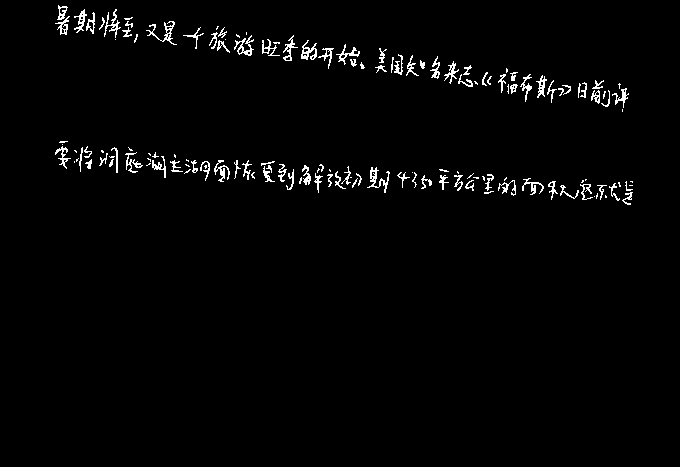 暑期将至,又是一个旅游旺季的开始。美国知名杂志《福布斯》日前评
要将洞庭湖主湖面恢复到解放初期4350平方公里的面积应就是